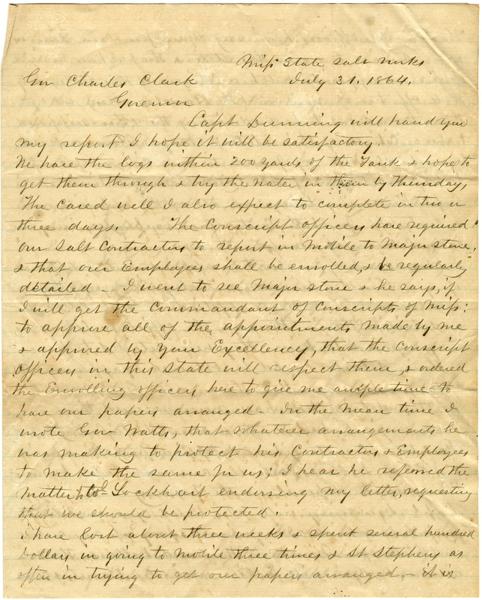 Missi State Salt Works
Gov Charles Clark July 31. 1864.
Governor
Capt Dunning will hand you
my report I hope it will be satisfactory.
We have the logs within 200 yards of the Tank & hope to
get them through & try the water in them by Thursday,
The caved well I also expect to complete in two or
three days. The Conscript officers have required
our Salt Contractors to report in Mobile to Major Stone,
& that our Employees shall be enrolled, & be regularly
detailed - I went to see Major Stone & he says, if
I will get the Commandant of Conscripts of Miss:
to approve all of the appointments made by me
& approved by Your Excellency, that the Conscript
officers in this State will respect them, & ordered
the Enrolling officers here to give me ample time to
have our papers arranged - In the mean time I
wrote Gov Watts, that whatever arrangements he
was making to protect his Contractors & Employees
to make the same for us; I hear he referred the
matter to Lockhart endorsing my letter, requesting
that we should be protected.
I have lost about three weeks & spent several hundred
Dollars in going to Mobile three times & St Stephens as
often in trying to get our papers arranged - it is